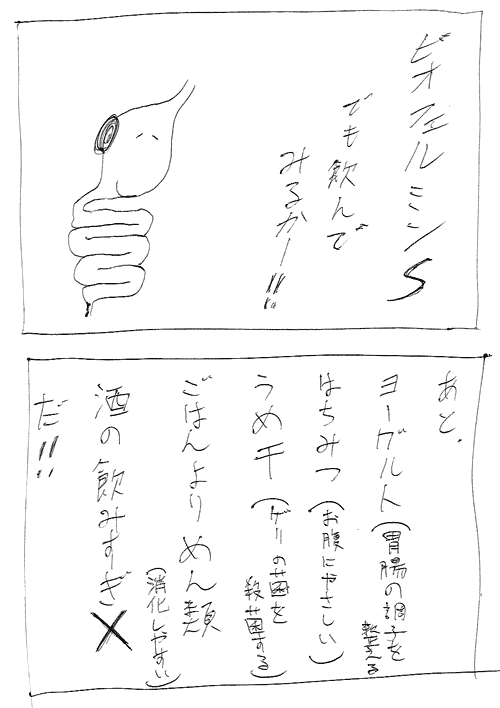 ビオフェルミンS
でも飲んで
みるかー!!
あと、
ヨーグルト(胃腸の調子を
整える)
はちみつ(お腹にやさしい)
うめ干(ゲリの菌を
殺菌する)
ごはんよりめん類
(消化しやすい)
酒の飲みすぎ×
だ!!